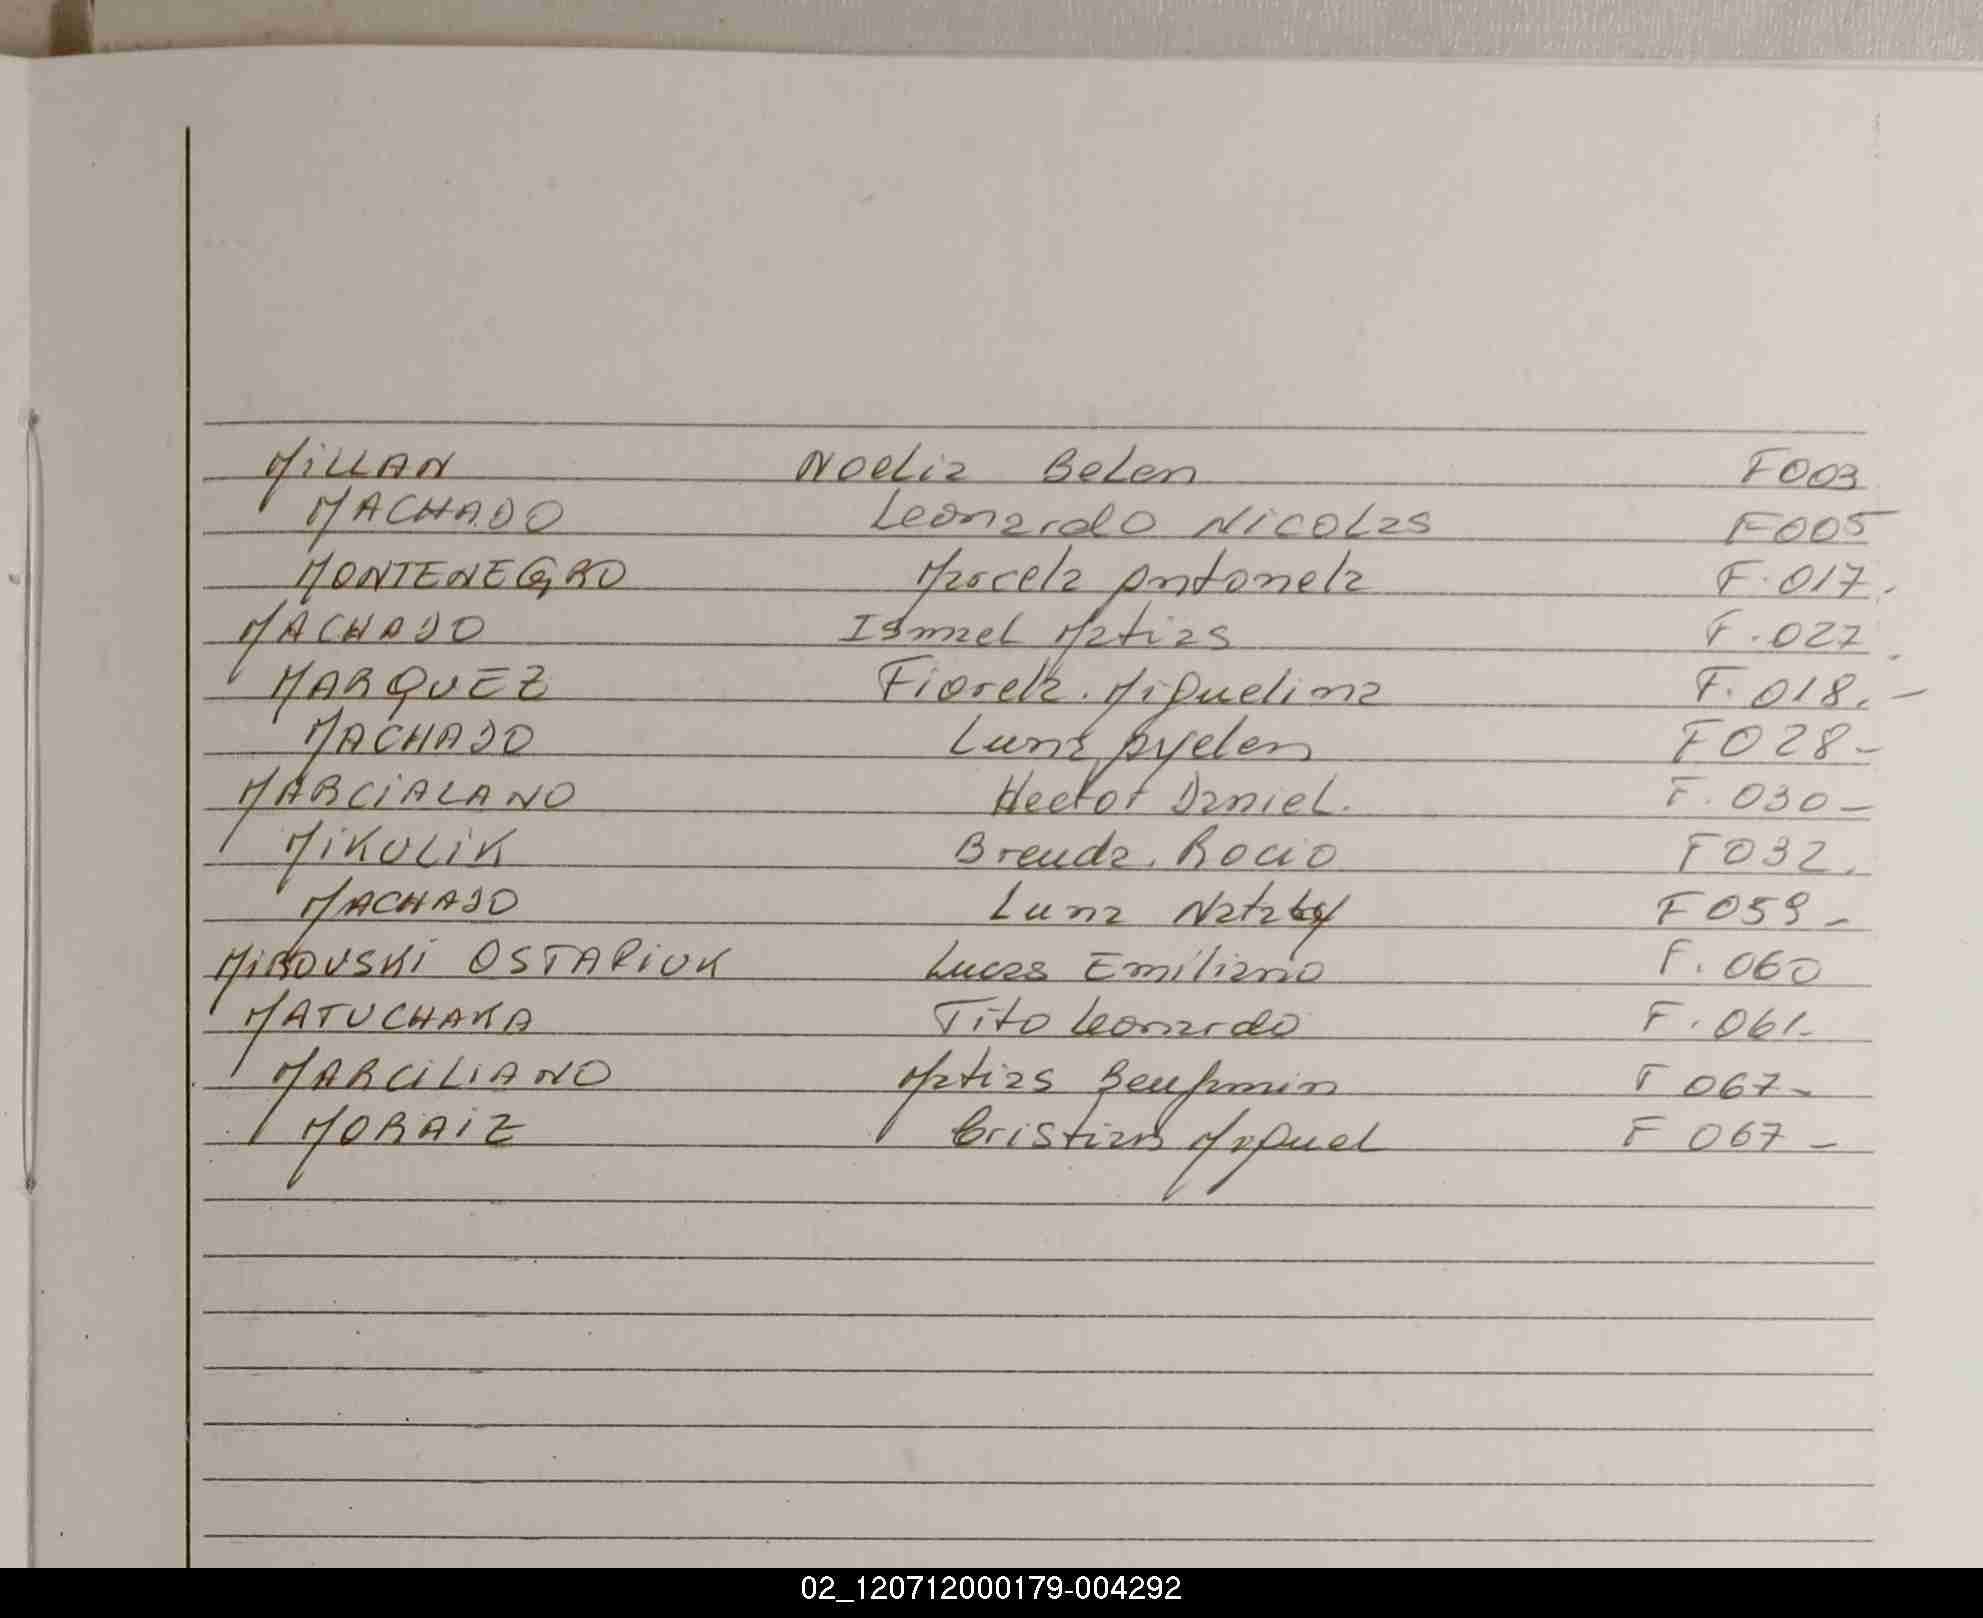 MILLAN Noelia Belen F003
MACHADO Leonardo Nicolas F005
MONTENEGRO Marcela Antonela F. 017.
MACHADO Ismael Matias F. 027.
MARQUEZ Fiorela. Miguelina F. 018.-
MACHADO Luna Ayelen F028-
MARCIALANO Hector Daniel. F. 030-
MIKULIK Brenda. Rocio F032.
MACHADO Luna F059-
MIROVSKI OSTAPIUK Lucas Emiliano F. 060
MATUCHAKA Tito Leonardo F. 061-
MARCILIANO Matias Benjamin F 067-
MORAIZ Cristian Miguel F 067-
02_120712000179-004292